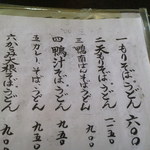 一 もりそば、うどん 六〇〇
二 天もりそば、うどん 一一五〇
三 鴨南ばんそば、うどん 九五〇
四 鴨汁そば、うどん 九五〇
五 カレーそば、うどん 九〇〇
六 から味大根そば、うどん 九〇〇